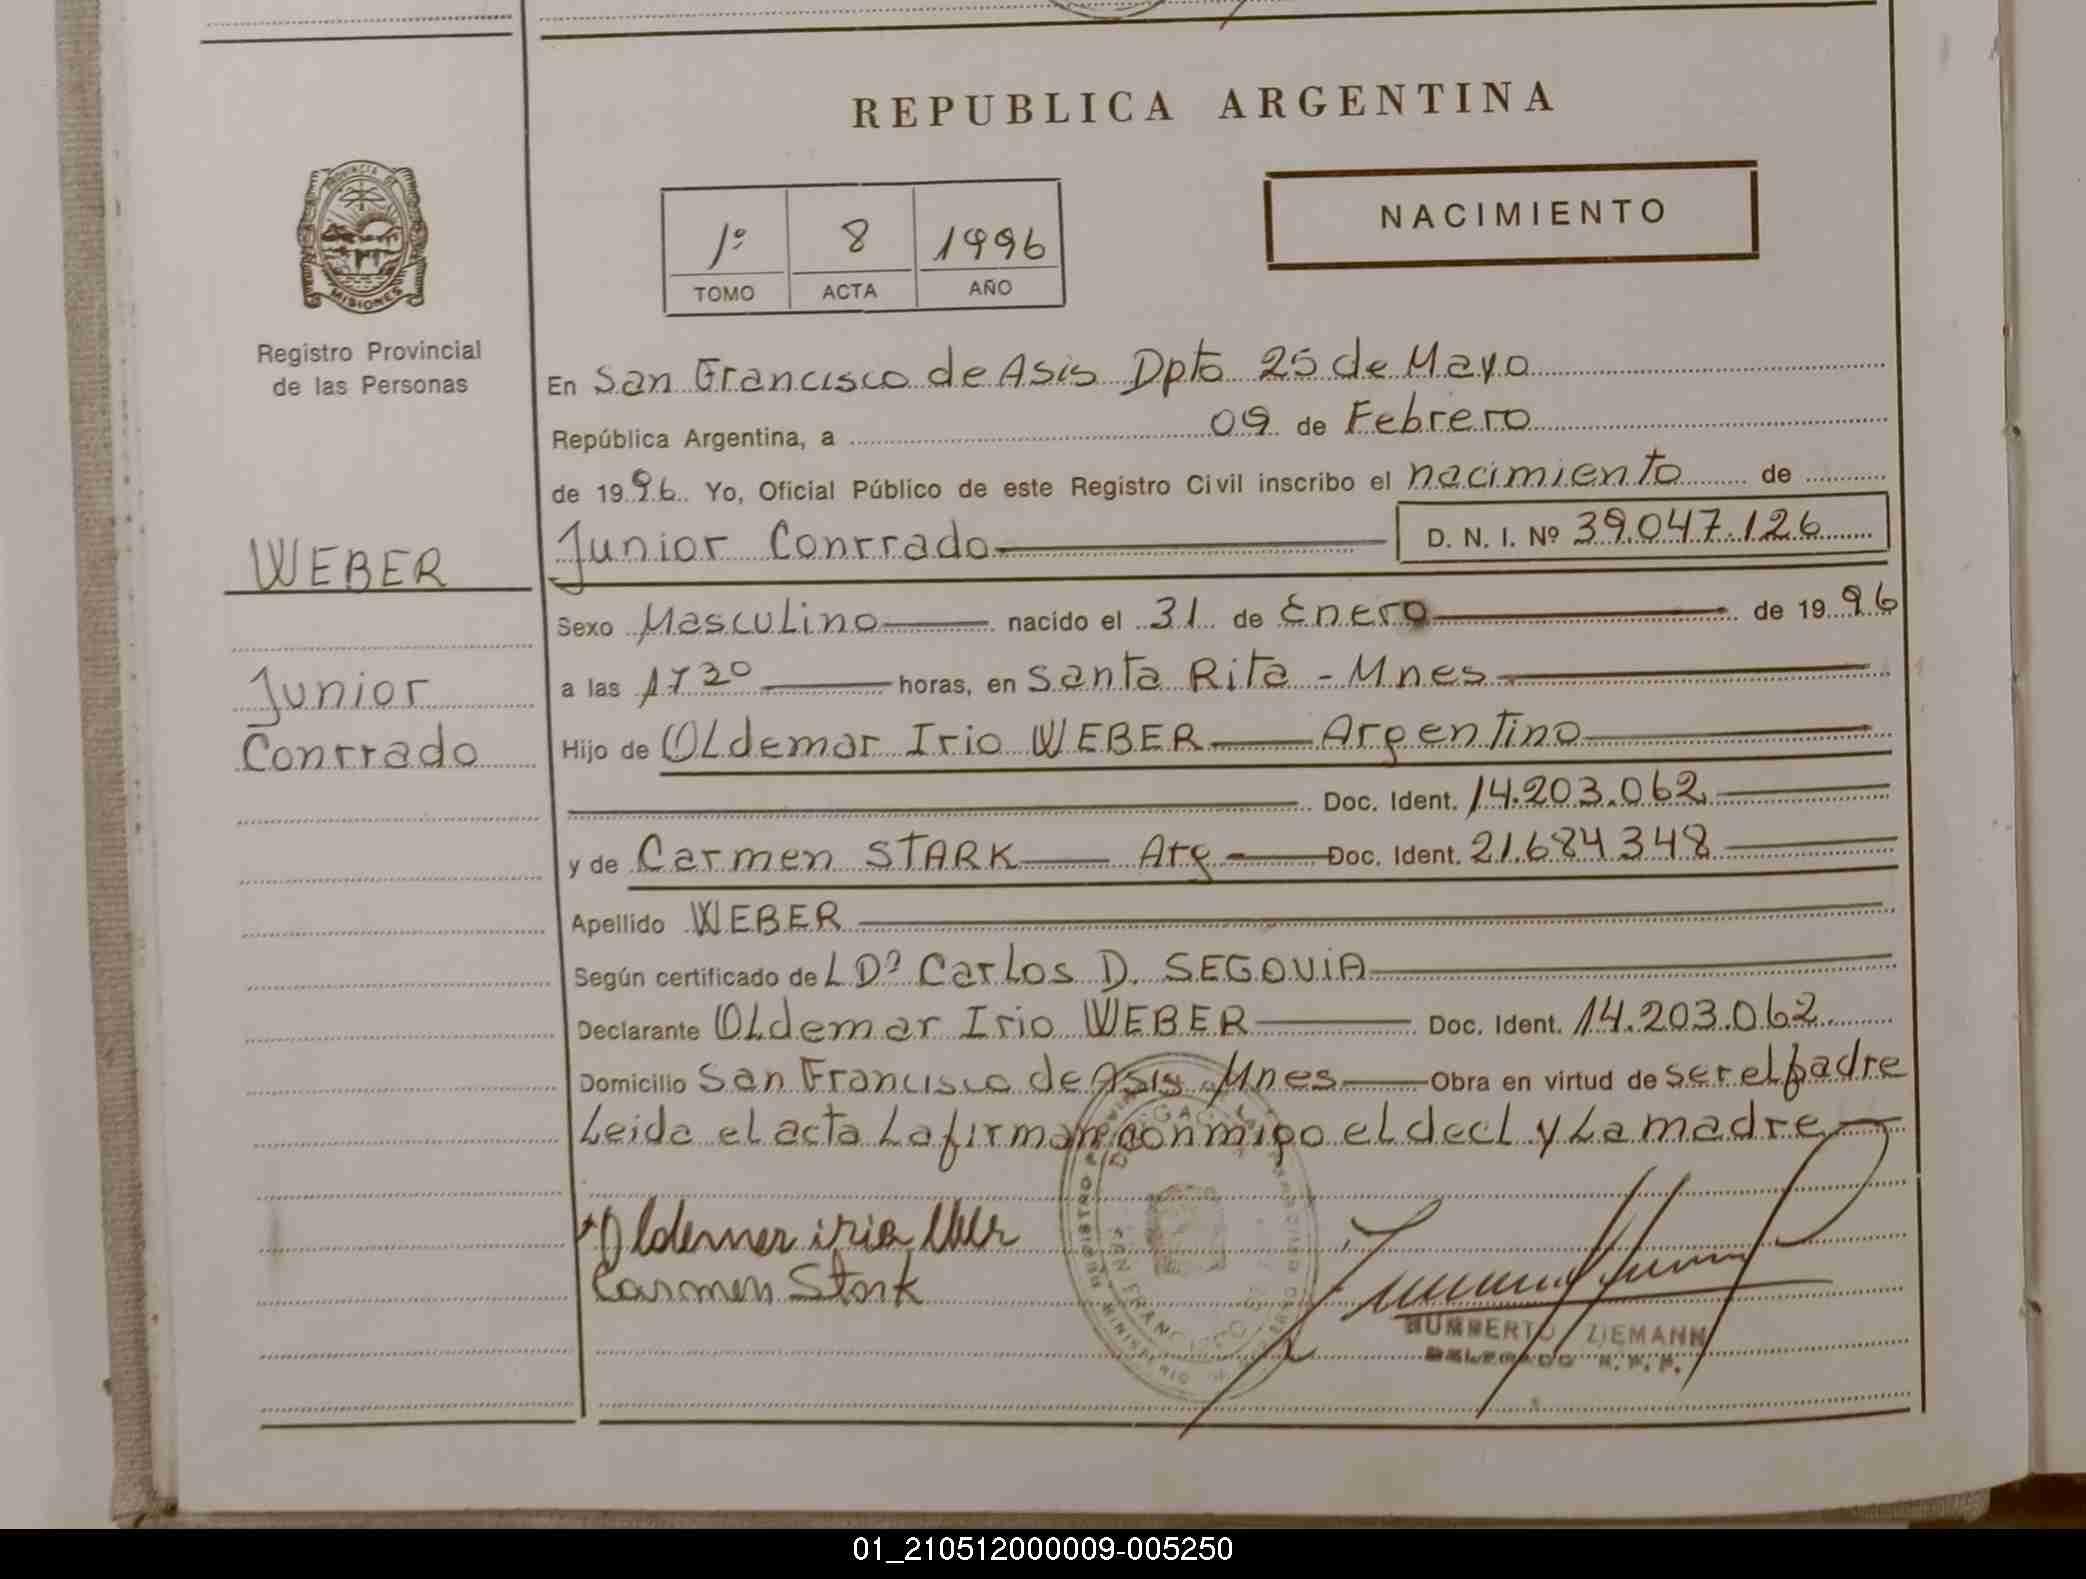 REPUBLICA ARGENTINA
PROVINCIA DE MISIONES
Registro Provincial
de las Personas
NACIMIENTO
1º 8 1996
TOMO ACTA AÑO
En San Francisco de Asis Dpto 25 de Mayo
República Argentina, a 09 de Febrero
de 1996. Yo, Oficial Público de este Registro Civil inscribo el nacimiento de
Junior Conrrado D. N. I. Nº 39.047.126
WEBER
Junior
Conrrado
Sexo Masculino nacido el 31 de Enero de 1996
a las 1730 horas, en Santa Rita - Mnes
Hijo de Oldemar Irio WEBER Argentino
Doc. Ident. 14.203.062
y de Carmen STARK Arg Doc. Ident. 21.684.348
Apellido WEBER
Según certificado de L Dº Carlos D. SEGOVIA
Declarante Oldemar Irio WEBER Doc. Ident. 14.203.062
Domicilio San Francisco de Asis Mnes Obra en virtud de ser el padre
Leida el acta la firman conmigo el decl y la madre
Oldemar irio Weber
Carmen Stark
HUMBERTO ZIEMANN
DELEGADO R. P. P.
01_210512000009-005250